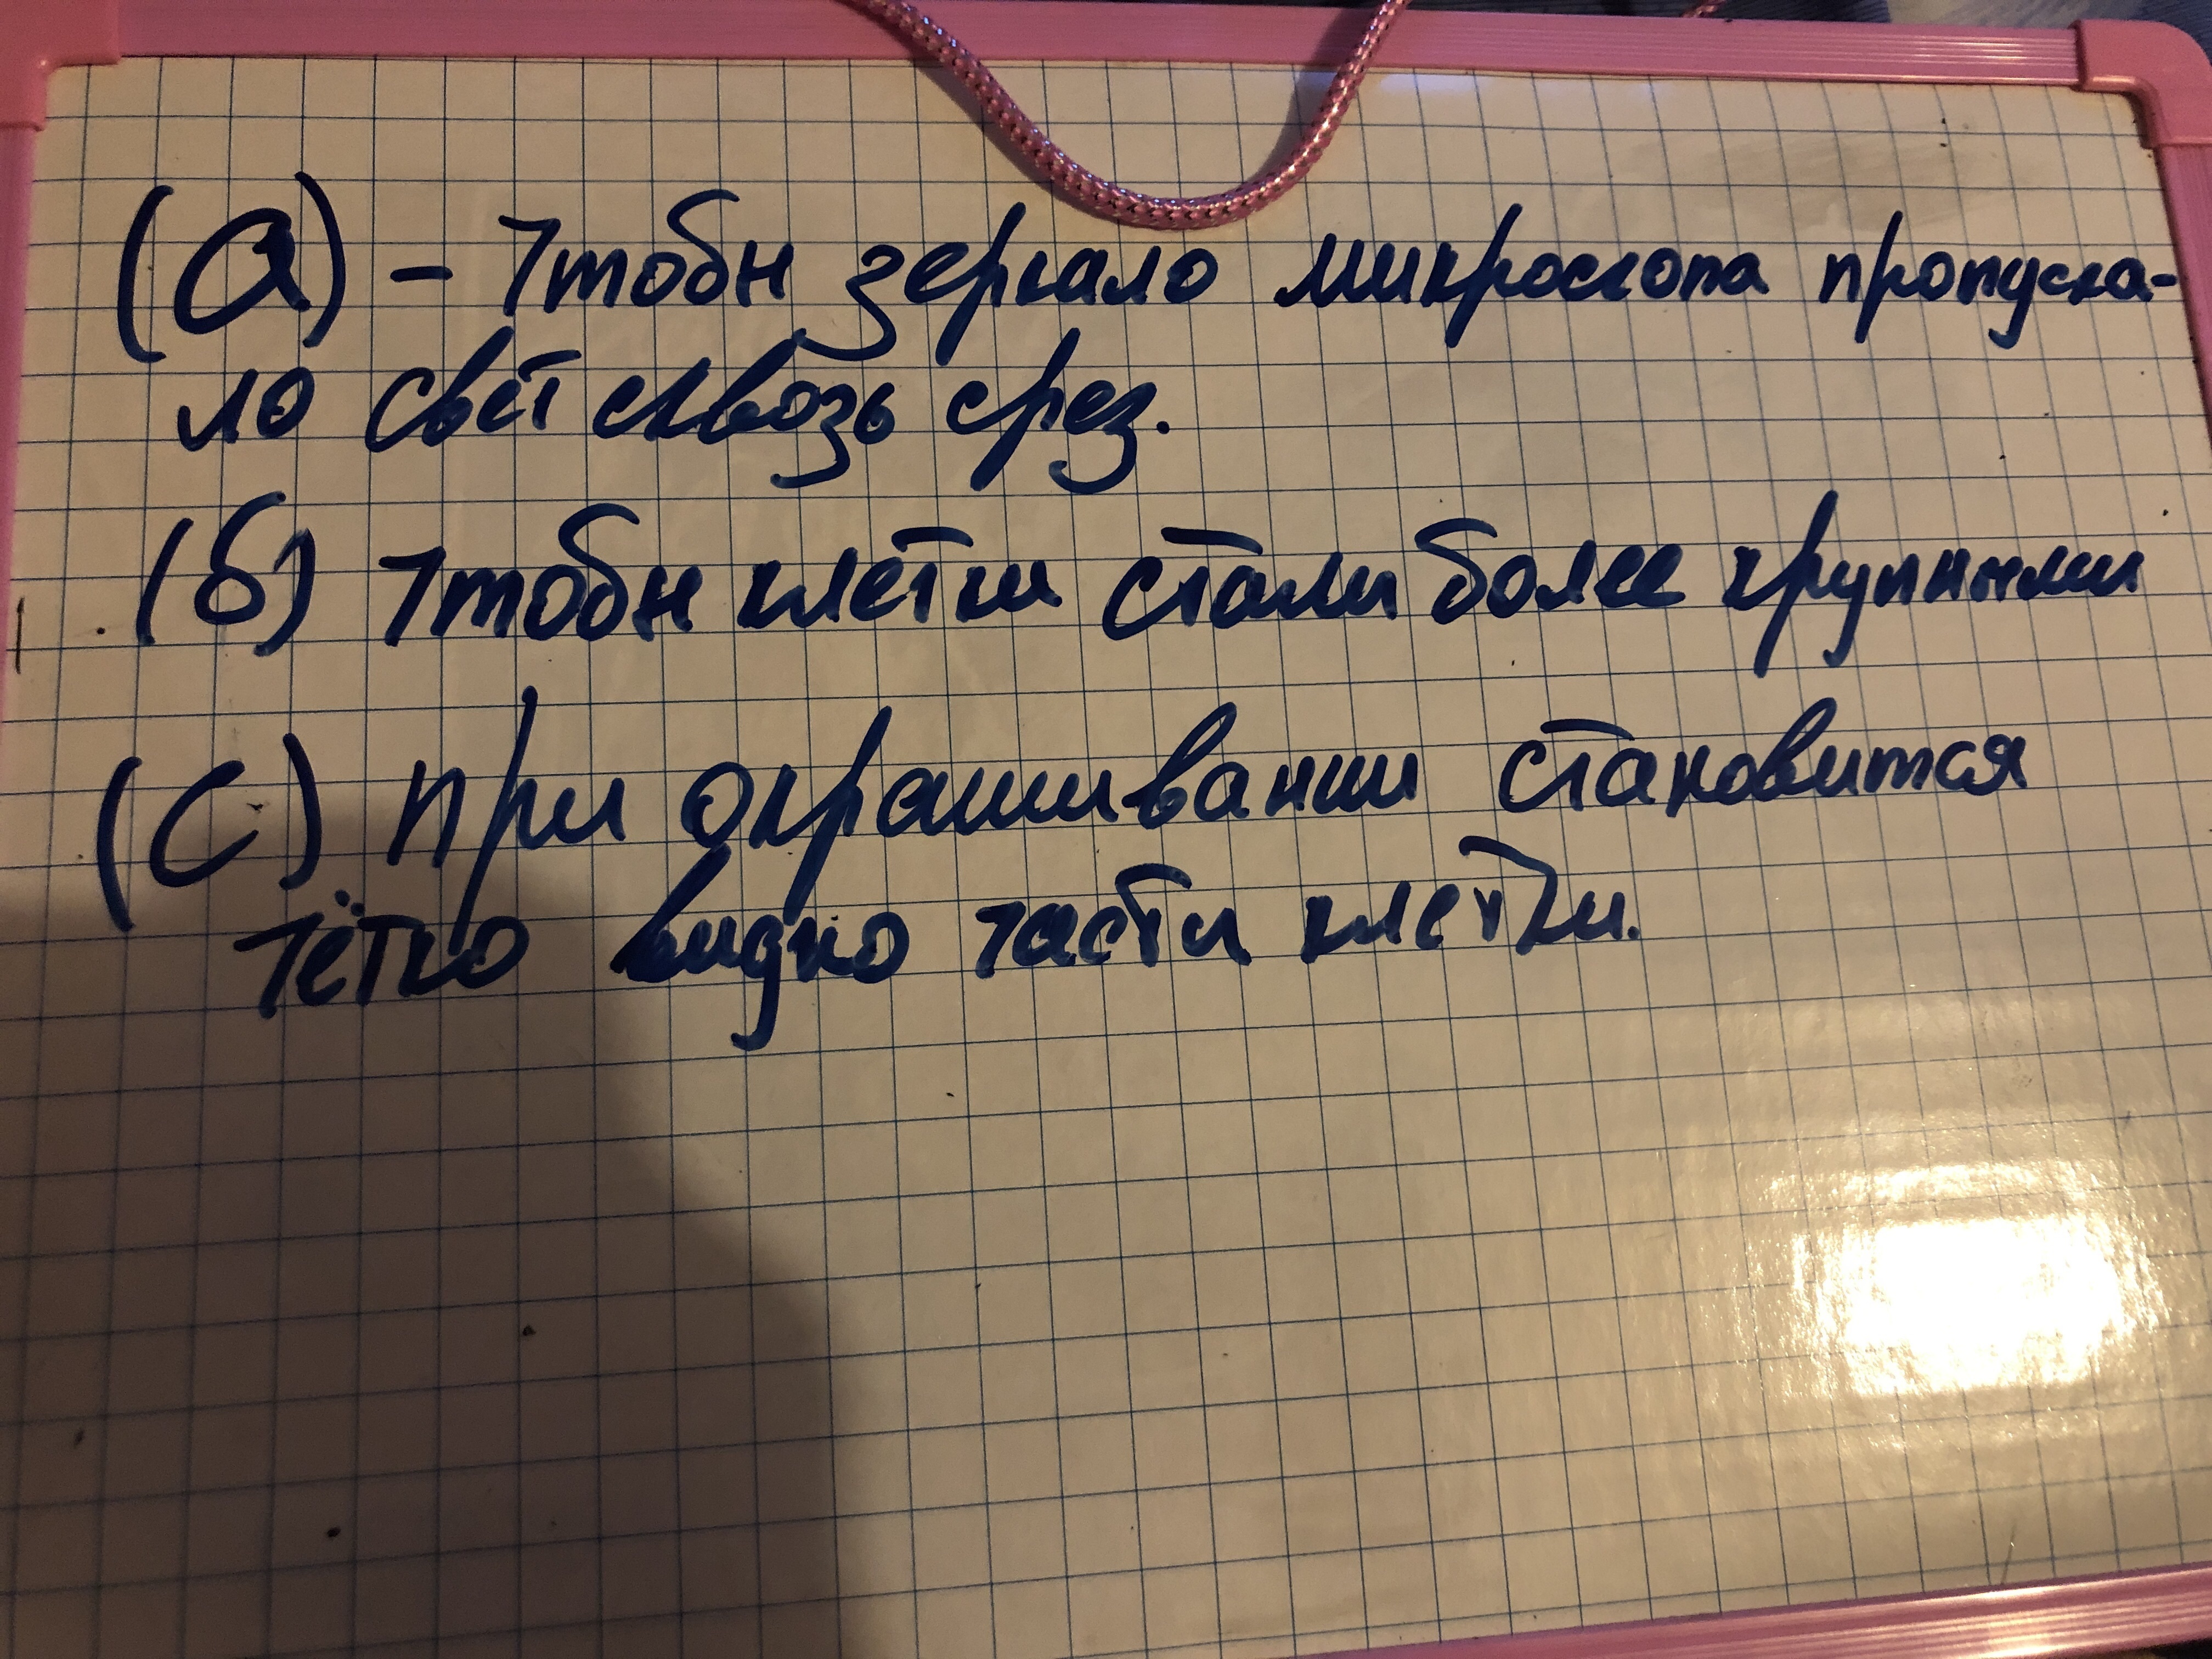 (а) - Чтобы зеркало микроскопа пропуска-
ло свет сквозь срез.
(б) Чтобы клетки стали более крупными
(с) При окрашивании становится
чётко видно части клетки.